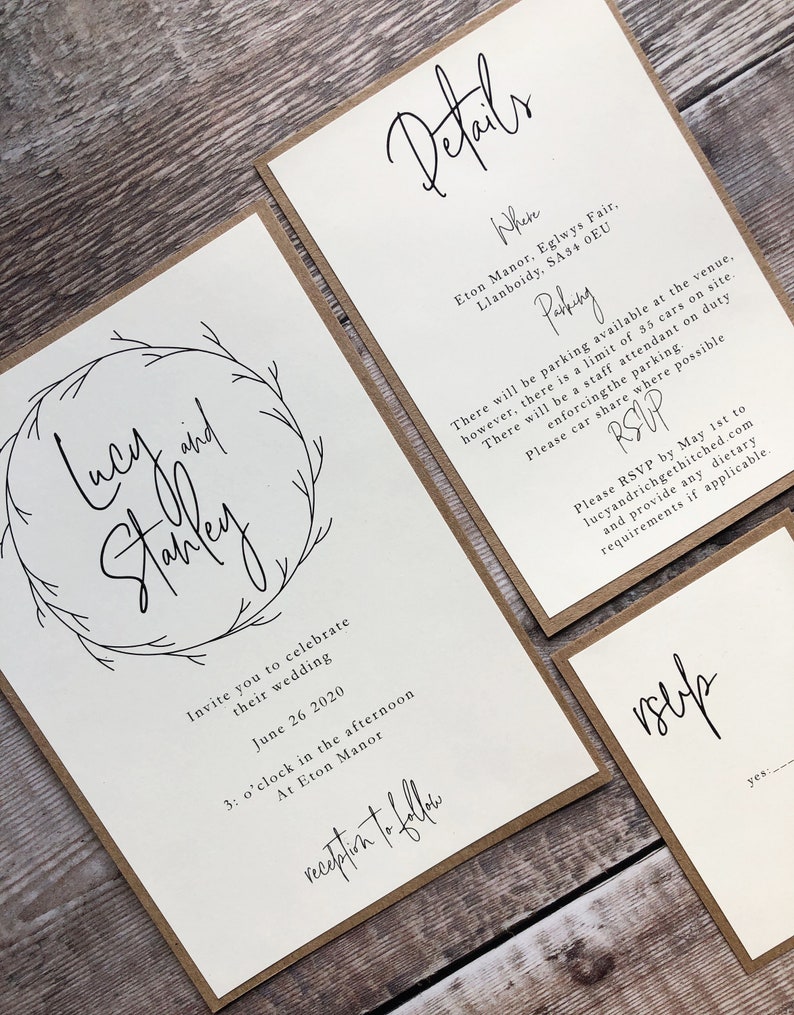 Lucy and
Stanley
Invite you to celebrate
their wedding
June 26 2020
3: o'clock in the afternoon
At Eton Manor
reception to follow
Details
Where
Eton Manor, Eglwys Fair,
Llanboidy, SA34 0EU
Parking
There will be parking available at the venue,
however, there is a limit of 35 cars on site.
There will be a staff attendant on duty
enforcingthe parking.
Please car share where possible
RSVP
Please RSVP by May 1st to
lucyandrichgethitched.com
and provide any dietary
requirements if applicable.
rsvp
yes:___